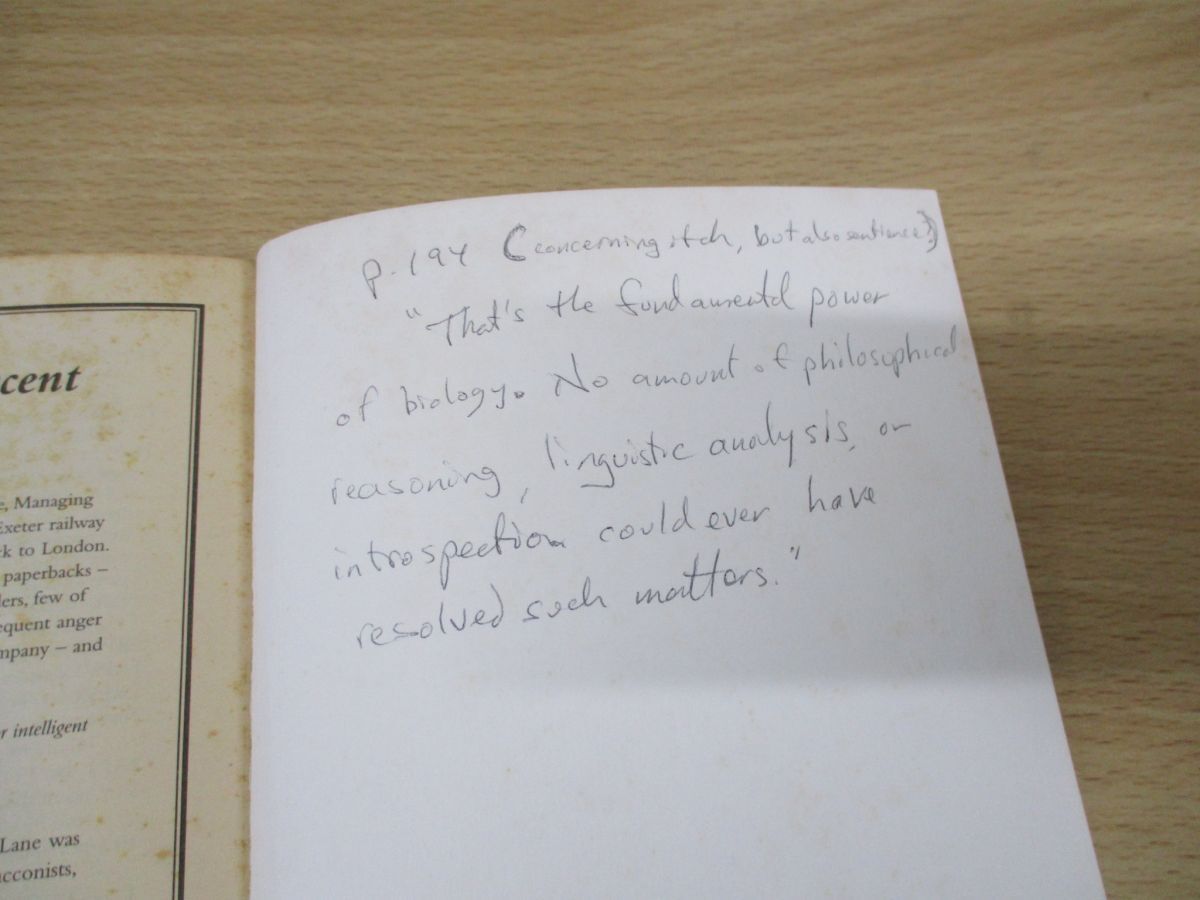 cent
e, Managing
Exeter railway
k to London.
paperbacks –
ers, few of
equent anger
mpany – and
r intelligent
Lane was
acconists,
p. 194 (concerning itch, but also sentience?)
"That's the fundamental power
of biology. No amount of philosophical
reasoning, linguistic analysis, or
introspection could ever have
resolved such matters."